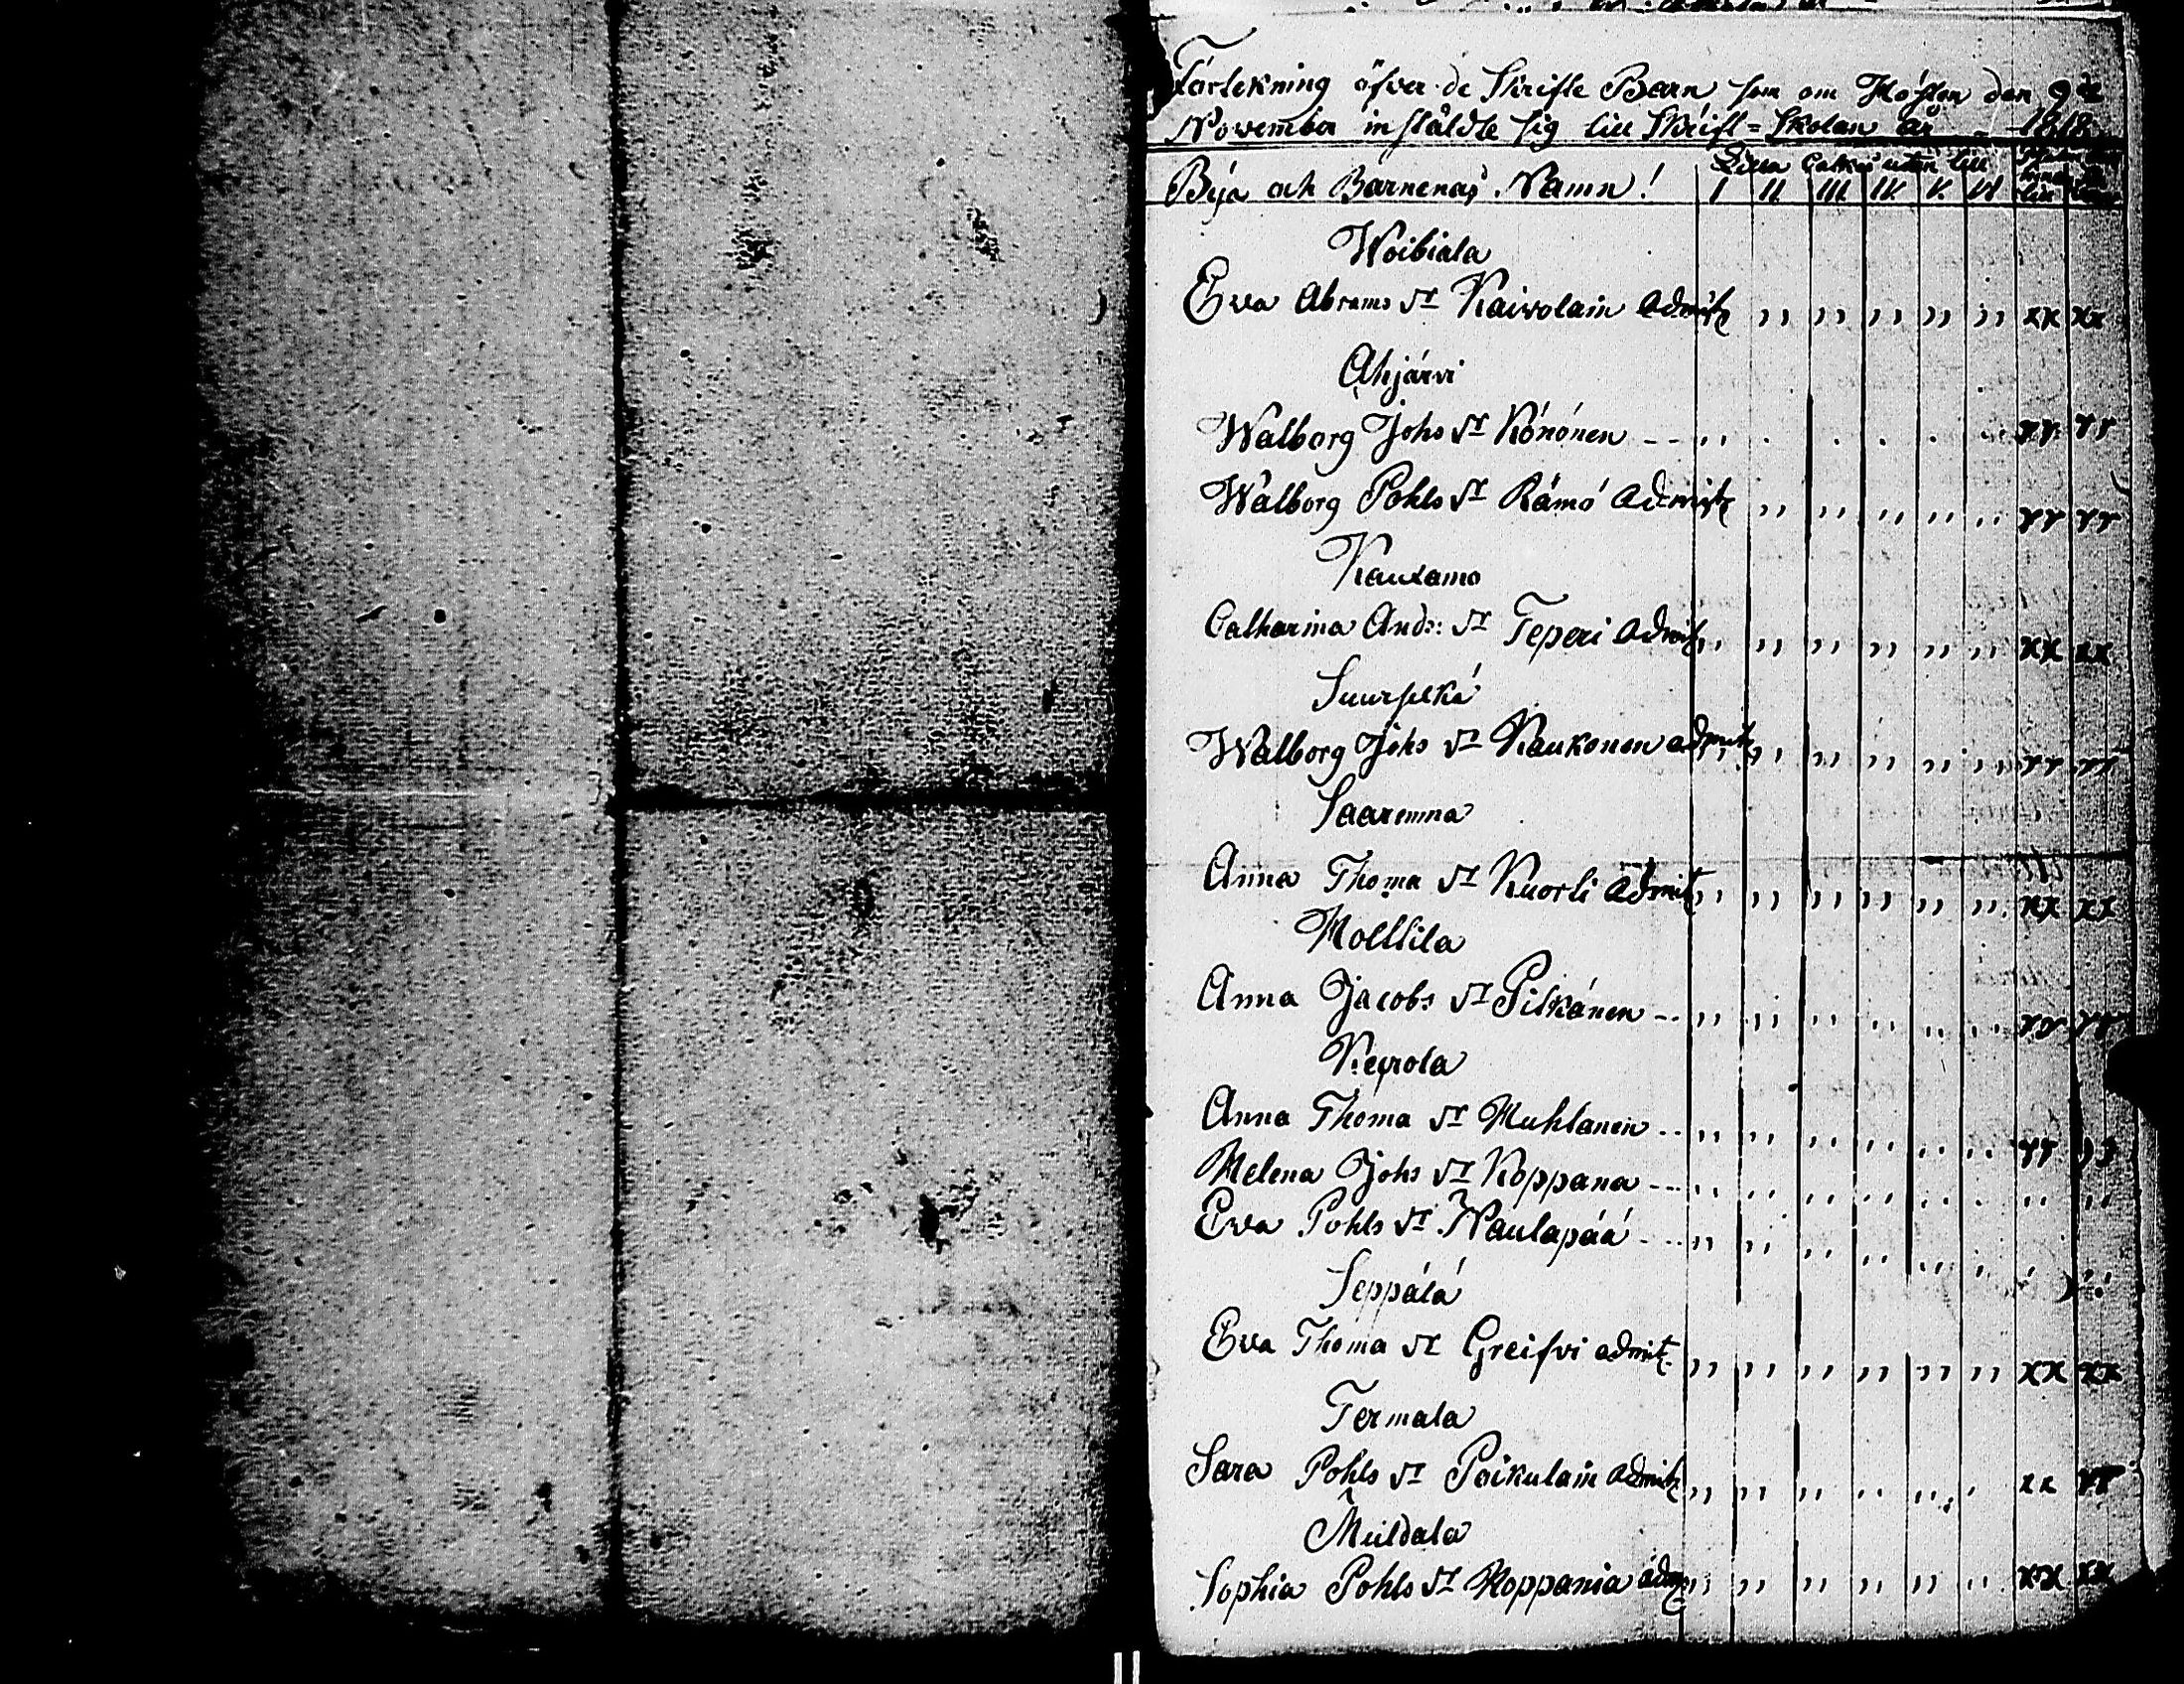 Förtekning öfver de Skrifte Barn som om Hösten den 9de
November instäldte sig till Skrift=Skolan år 1818
Lilla Catkes utan till
Byja och Barnenas Namn! I II III IV. V. VI
Woibiala
Eva Abrams dr Kaivolain admitz ,, ,, ,, ,, ,, xx xx
Ahjärvi
Walborg Johs dr Könönen -- ,,
Walborg Pohls dr Rämö Admitz ,, ,, ,, ,, ,,
Kautamo
Catharina Andr: dr Teperi admitz ,, ,, ,, ,, ,, ,, xx xx
Suurselkä
Walborg Johs dr Kaukonen admitz ,, ,, ,, ,, ,,
Saaremna
Anna Thoma dr Kuorti admitz ,, ,, ,, ,, ,, ,, xx xx
Molttila
Anna Jacobs dr Pitkänen -- ,, ,, ,, ,, ,, ,,
Keyrola
Anna Thoma dr Huhtanen -- ,, ,, ,, ,, ,, ,,
Helena Johs dr Hoppana --- ,, ,, ,, ,, ,, ,, ,, ,,
Eva Pohls dr Naulapää --- ,, ,, ,, ,, ,,
Seppälä
Eva Thoma dr Greifvi admitz ,, ,, ,, ,, ,, ,, xx xx
Termala
Sara Pohls dr Poikulain admitz ,, ,, ,, ,, ,, , xx
Muldala
Sophia Pohls dr Hoppania admitz ,, ,, ,, ,, ,, ,, xx xx